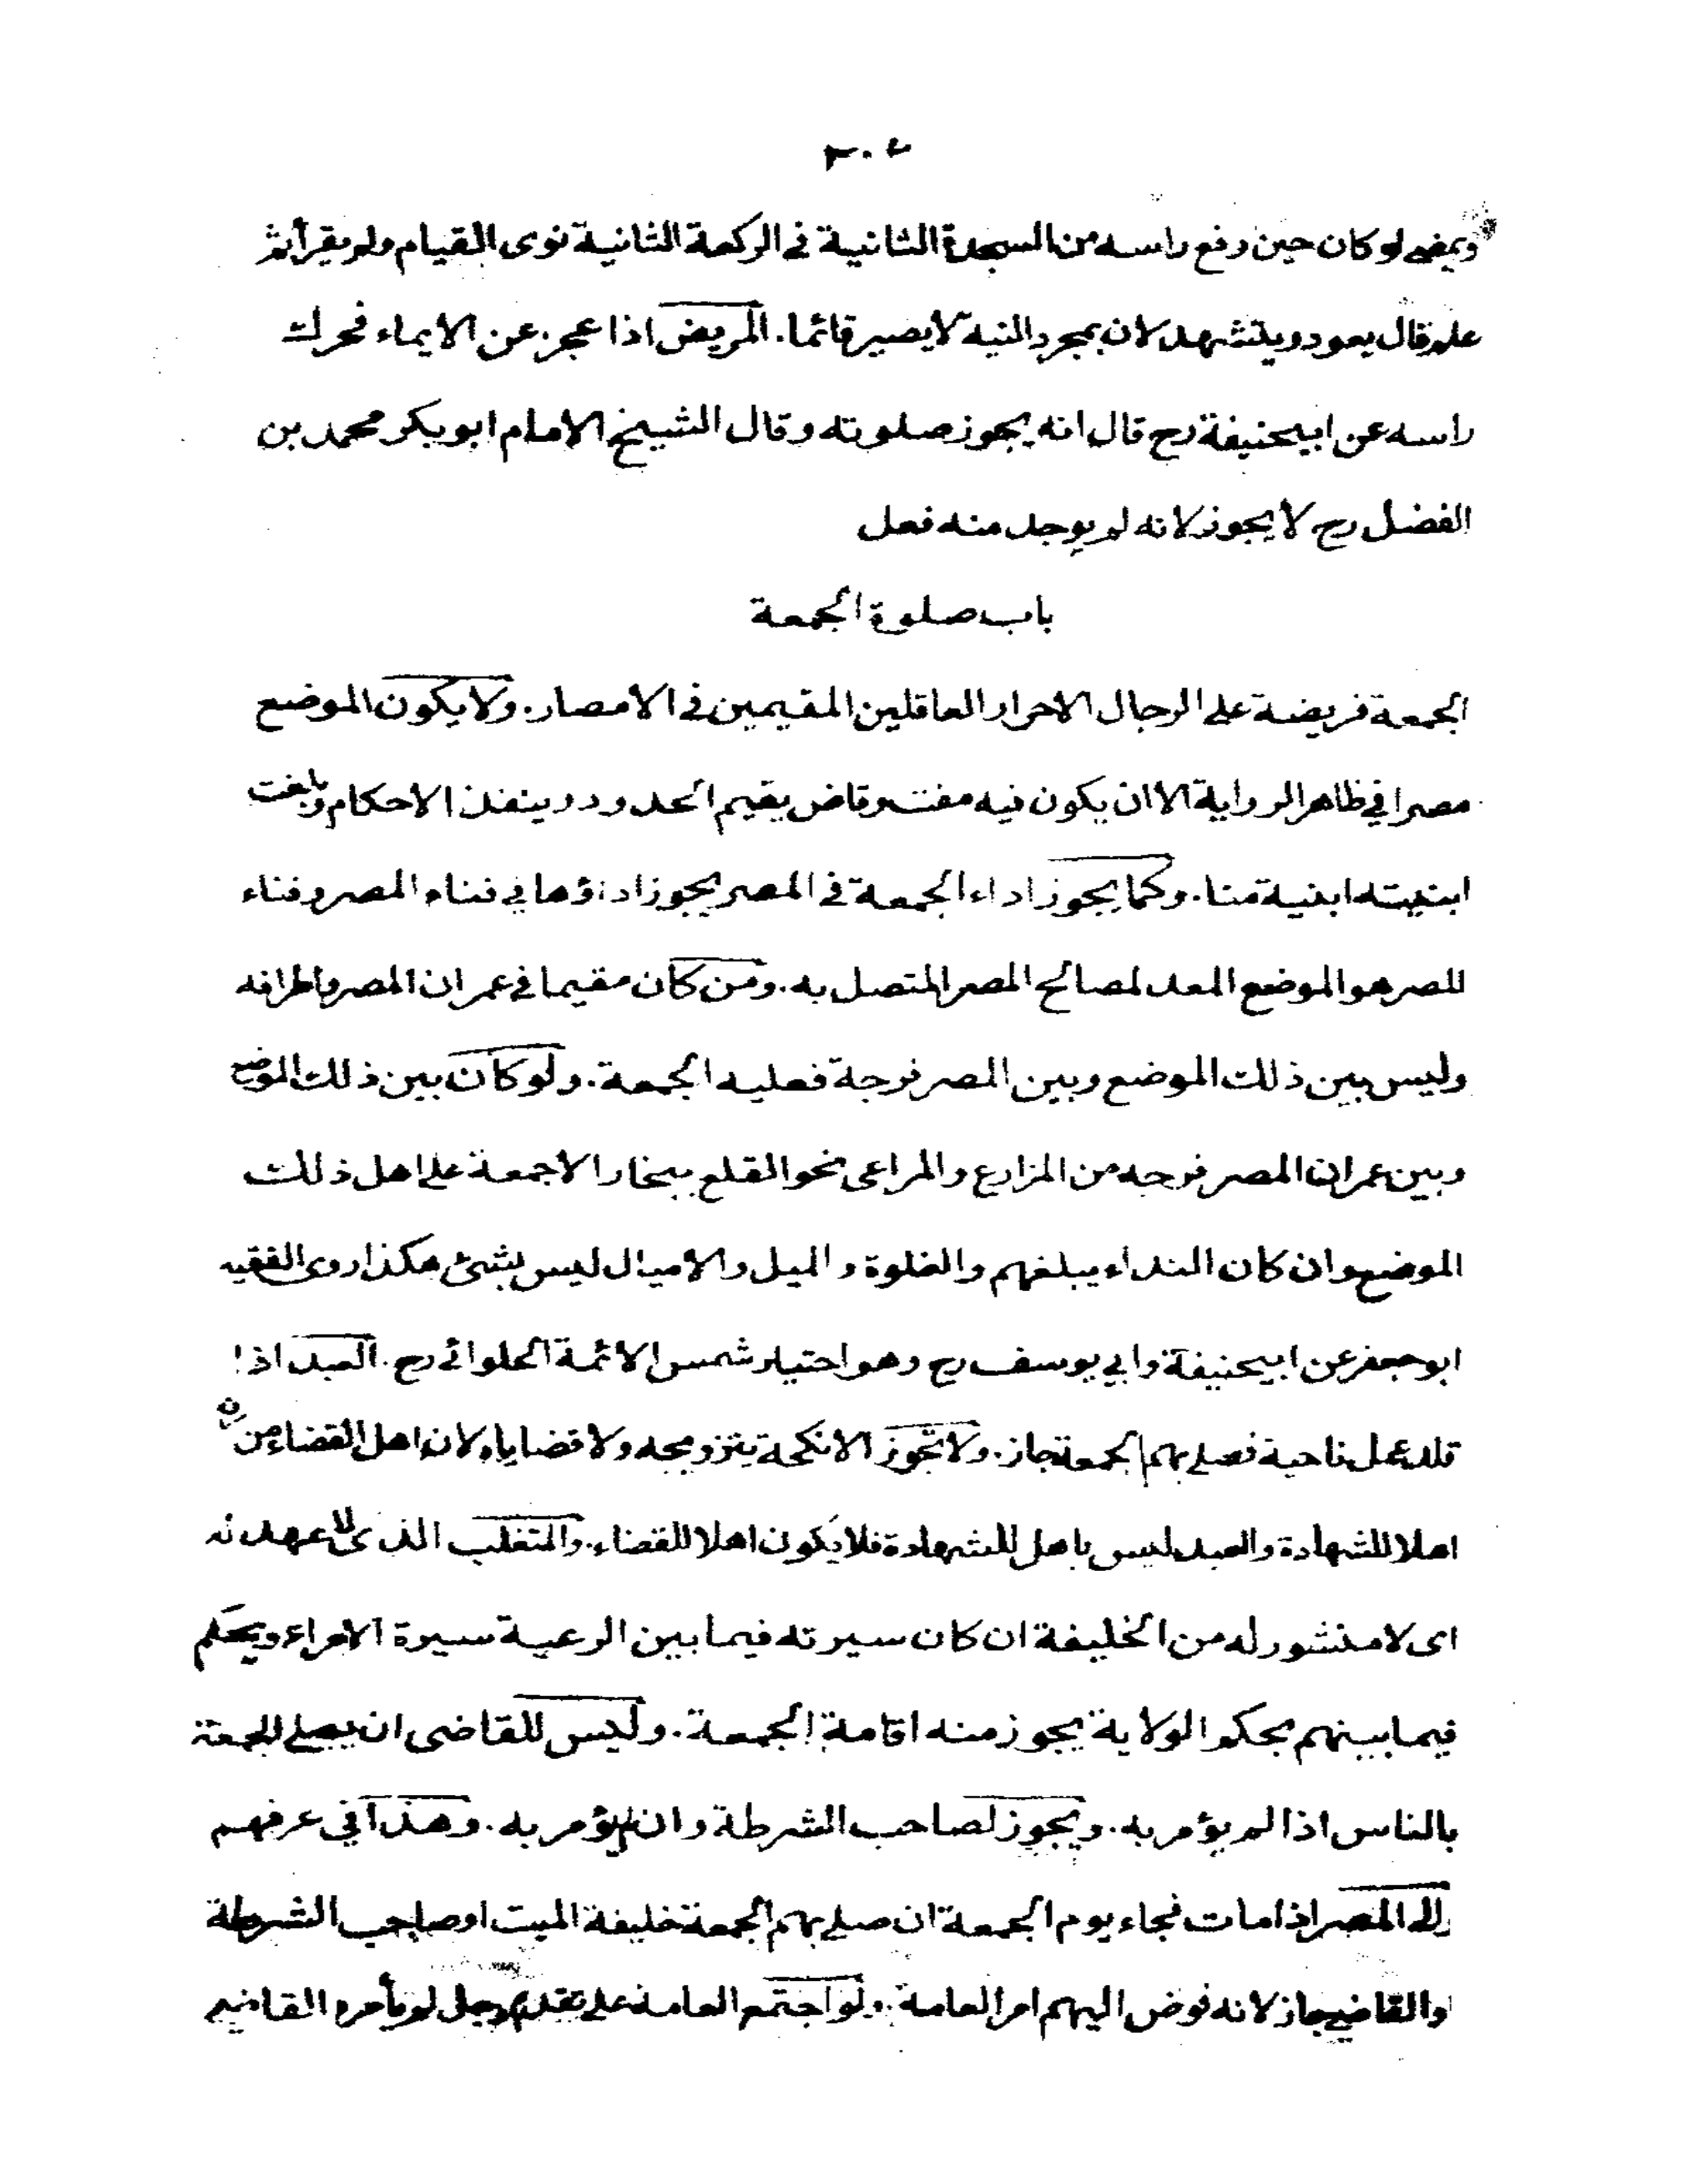 ٣٠٤
ويمضى لو كان حين رفع راسه من السجدة الثانية فى الركعة الثانية نوى القيام ولم يقرأ ثم
علم قال يعود ويتشهد لان بمجرد النيه لا يصير قائما. المريض اذا عجز عن الايماء فحرك
راسه عن ابيحنيفة رح قال انه يجوز صلوته وقال الشيخ الامام ابو بكر محمد بن
الفضل رح لا يجوز لانه لم يوجد منه فعل
باب صلوة الجمعة
الجمعة فريضة على الرجال الاحرار العاقلين المقيمين فى الامصار. ولا يكون الموضع
مصرا في ظاهر الرواية الا ان يكون فيه مفت وقاض يقيم الحدود وينفذ الاحكام وبلغت
ابنيته ابنية منا. وكما يجوز اداء الجمعة فى المصر يجوز اداؤها في فناء المصر وفناء
المصر هو الموضع المعد لمصالح المصر المتصل به. ومن كان مقيما فى عمران المصر واطرافه
وليس بين ذلك الموضع وبين المصر فرجة فعليه الجمعة. ولو كان بين ذلك الموضع
وبين عمران المصر فرجه من المزارع والمراعى نحو القلع ببخارا لا جمعة على اهل ذلك
الموضع وان كان النداء يبلغهم والغلوة والميل والاميال ليس بشئ هكذا روى الفقيه
ابو جعفر عن ابيحنيفة وابي يوسف رح وهو اختيار شمس الائمة الحلوائى رح. العبد اذا
قلد عمل ناحية فصلى بهم الجمعة جاز. ولا تجوز الانكحة بتزويجه ولا قضاياه لان اهل القضاء من كان
اهلا للشهادة والعبد ليس باهل للشهادة فلا يكون اهلا للقضاء. والمتغلب الذى لا عهد له
اى لا منشور له من الخليفة ان كان سيرته فيما بين الرعية سيرة الامراء ويحكم
فيما بينهم بحكم الولاية يجوز منه اقامة الجمعة. وليس للقاضى ان يصلى الجمعة
بالناس اذا لم يؤمر به. ويجوز لصاحب الشرطة وان لم يؤمر به. وهذا في عرفهم
المصر اذا مات فجاء يوم الجمعة ان صلى بهم الجمعة خليفة الميت او صاحب الشرطة
او القاضى جاز لانه فوض اليهم امر العامة. ولو اجتمع العامة على تقديم رجل لم يأمره القاضى